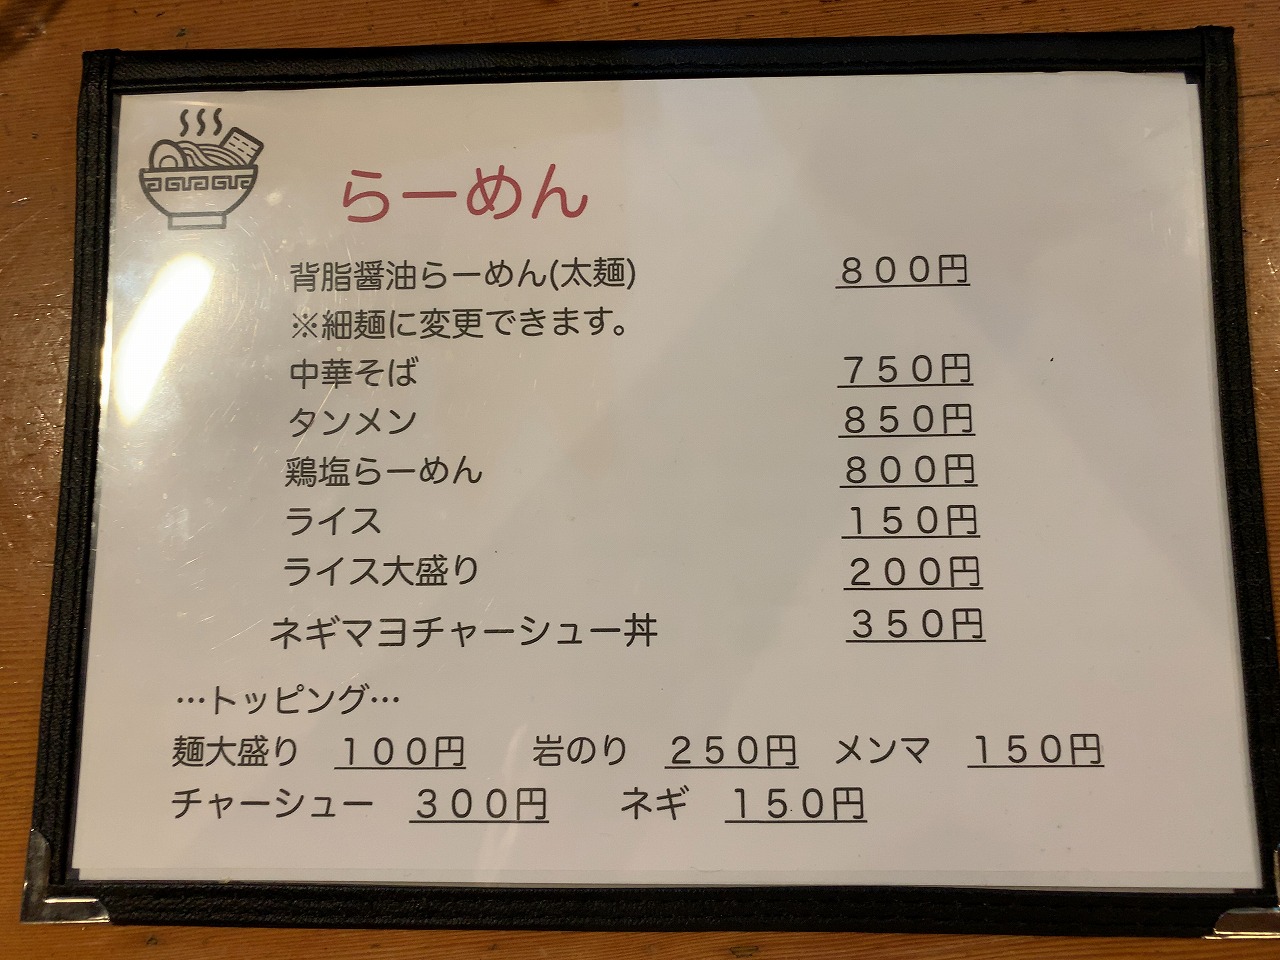 らーめん
背脂醤油らーめん(太麺) ８００円
※細麺に変更できます。
中華そば ７５０円
タンメン ８５０円
鶏塩らーめん ８００円
ライス １５０円
ライス大盛り ２００円
ネギマヨチャーシュー丼 ３５０円
…トッピング…
麺大盛り １００円 岩のり ２５０円 メンマ １５０円
チャーシュー ３００円 ネギ １５０円